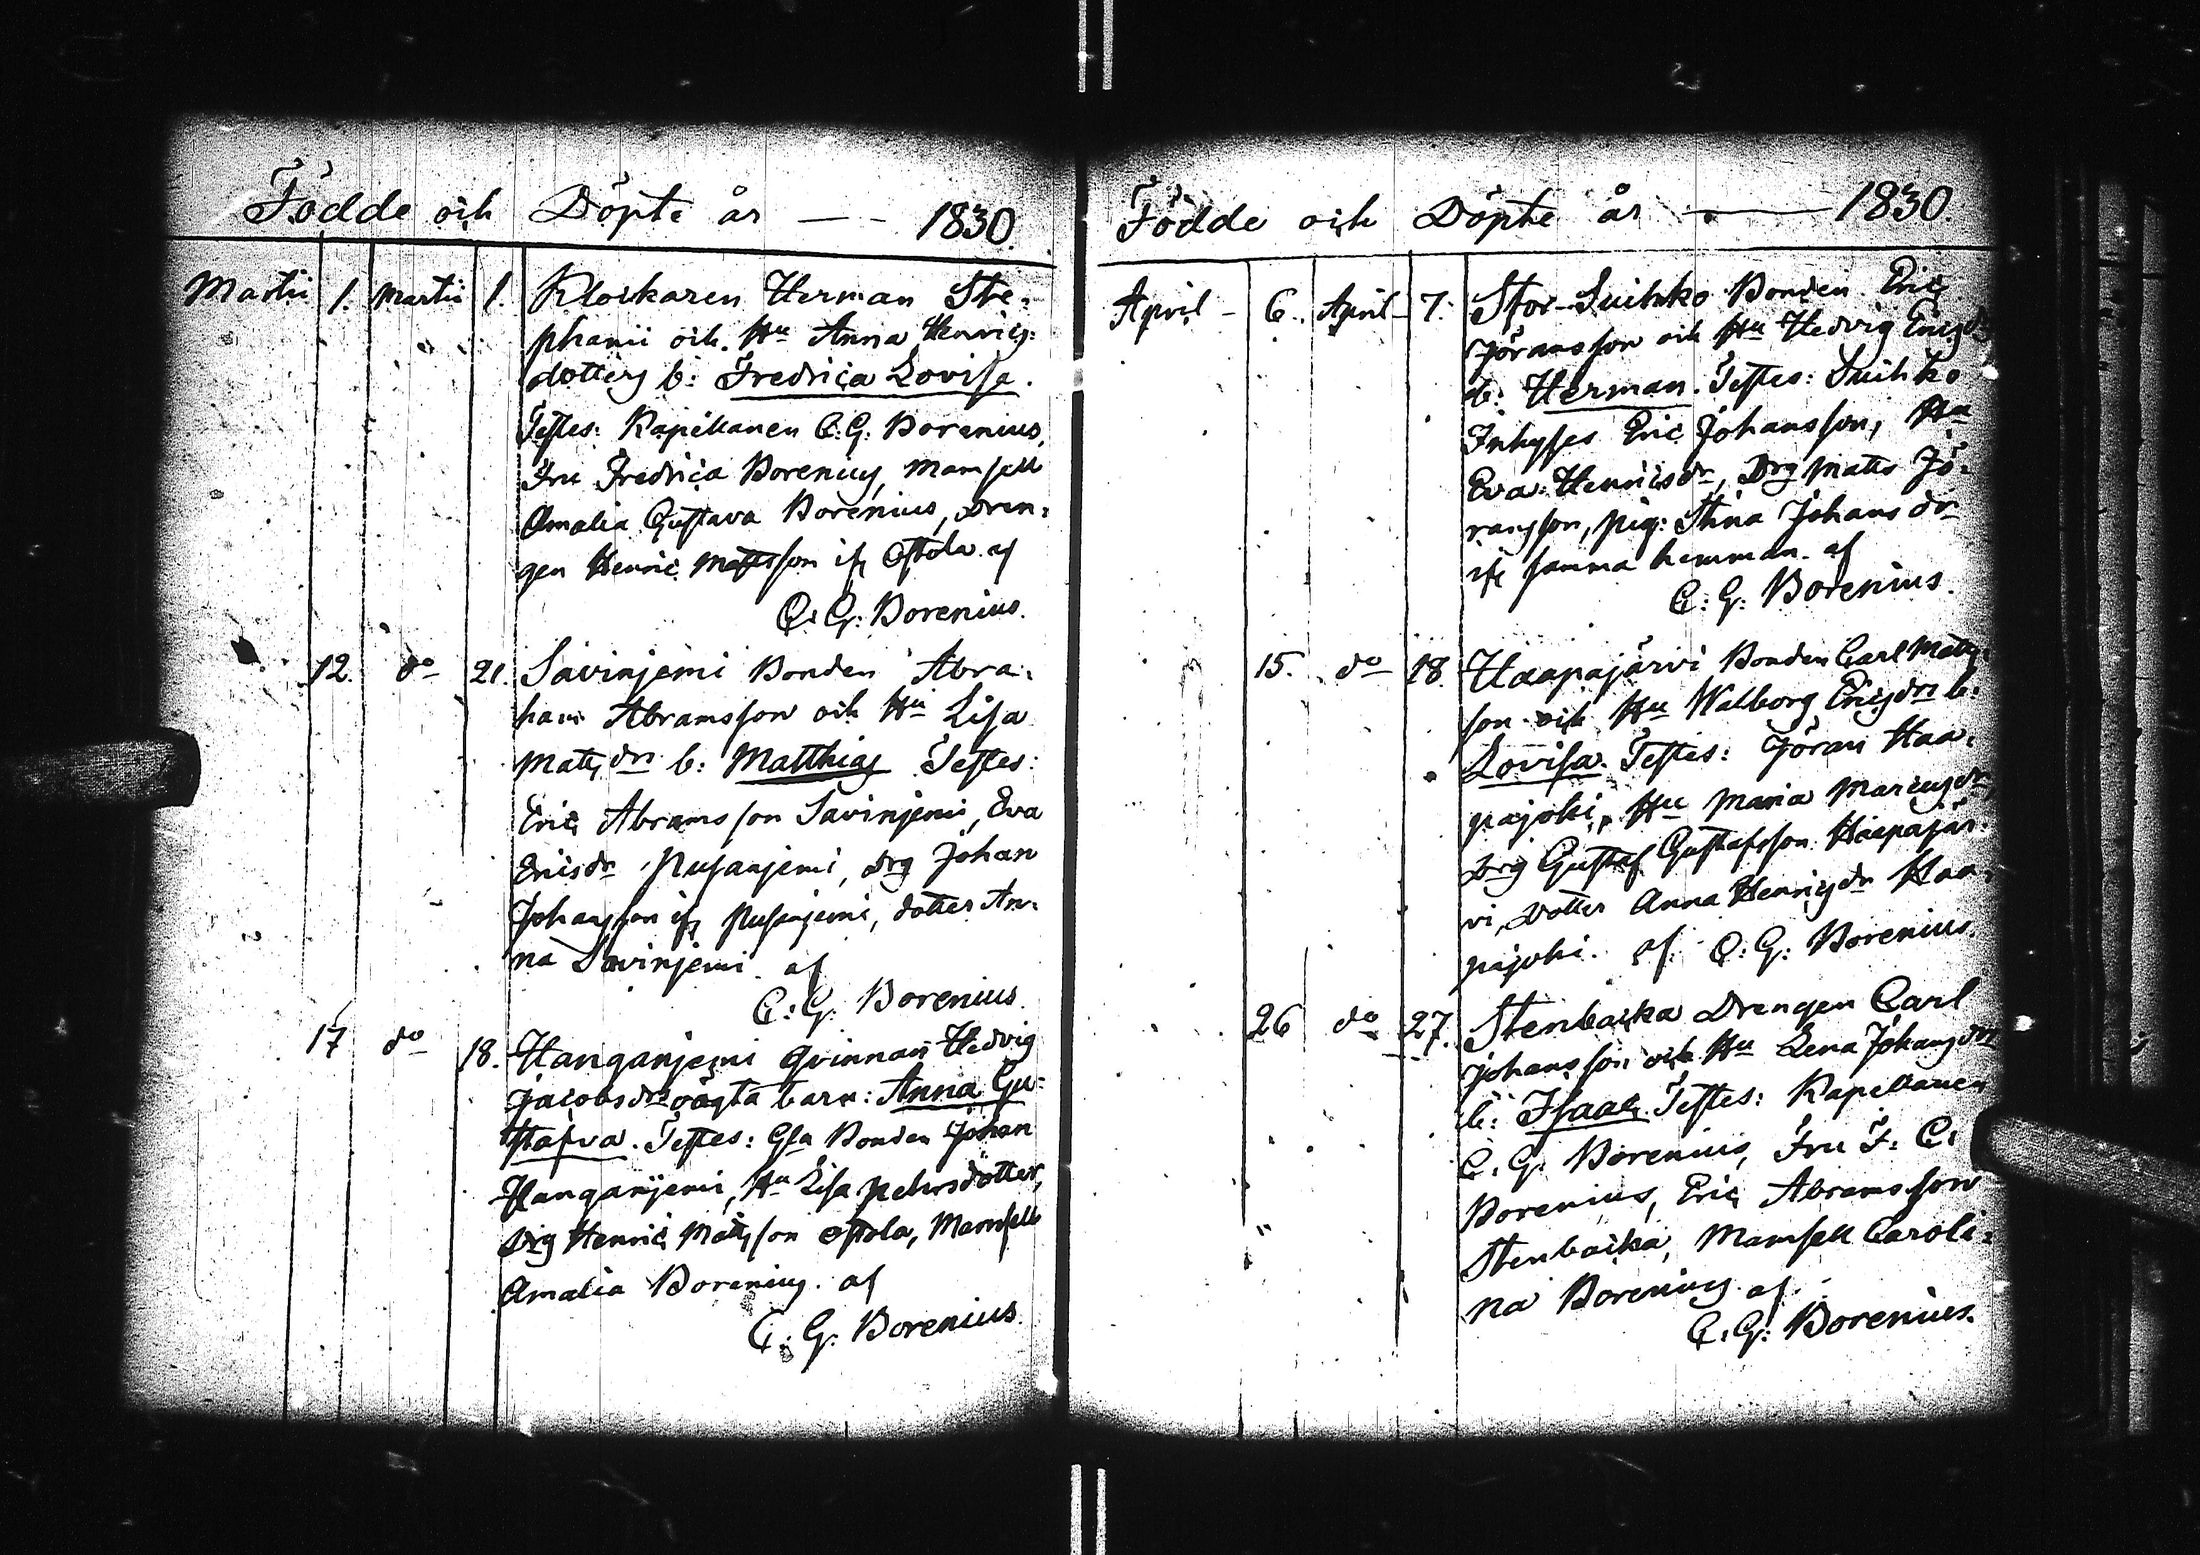 Födde och Döpte år — - 1830.
Martii 1. Martii 1. Klockaren Herman Ste-
phanii och Hu Anna Henrics-
dotters b: Fredrica Lovisa.
Testes: Kapellanen C: G: Borenius,
Fru Fredrica Borenius, Mamsell
Amalia Gustava Borenius, Dren-
gen Henric Mattsson ifr Ostola af
C: G: Borenius.
12. do 21. Savinjemi Bonden Abra-
ham Abramsson och Hu Lisa
Matsdrs b: Matthias Testes:
Eric Abramsson Savinjemi, Eva
Ericsdr Pusanjemi, Drg Johan
Johansson ifr Pusanjemi, dotter An-
na Savinjemi. af
C: G: Borenius.
17 do 18. Hanganjemi Qvinnan Hedvig
Jacobsdrs oägta barn: Anna Gu-
stafva. Testes: Gla Bonden Johan
Hanganjemi, Hu Lisa Pehrsdotter,
Drg Henric Matsson Ostola, Mamsell
Amalia Borenius. af
C: G: Borenius.
Födde och Döpte år — 1830.
April - 6. April - 7. Stor-Suihko Bonden Eric
Jöransson och Hu Hedvig Ericsdrs
b: Herman. Testes: Suihko
Inhyses Eric Johansson, Hu
Eva Henricsdr, Drg Matts Jö-
ransson, pig: Stina Johansdr
ifr samma hemman. af
C: G: Borenius.
15. do 18. Haapajärvi Bonden Carl Mats-
son och Hu Walborg Ericsdrs b:
Lovisa. Testes: Jöran Haa-
pajoki, Hu Maria Marcusdr,
Drg Gustaf Gustafsson Haapajär-
vi, Dotter Anna Henricsdr Haa-
pajoki. af C: G: Borenius.
26 do 27. Stenbacka Drengen Carl
Johansson och Hu Lena Johansdrs
b: Isaac. Testes: Kapellanen
C: G: Borenius, Fru F: C:
Borenius, Eric Abramsson
Stenbacka, Mamsell Caroli-
na Borenius af
C: G: Borenius.